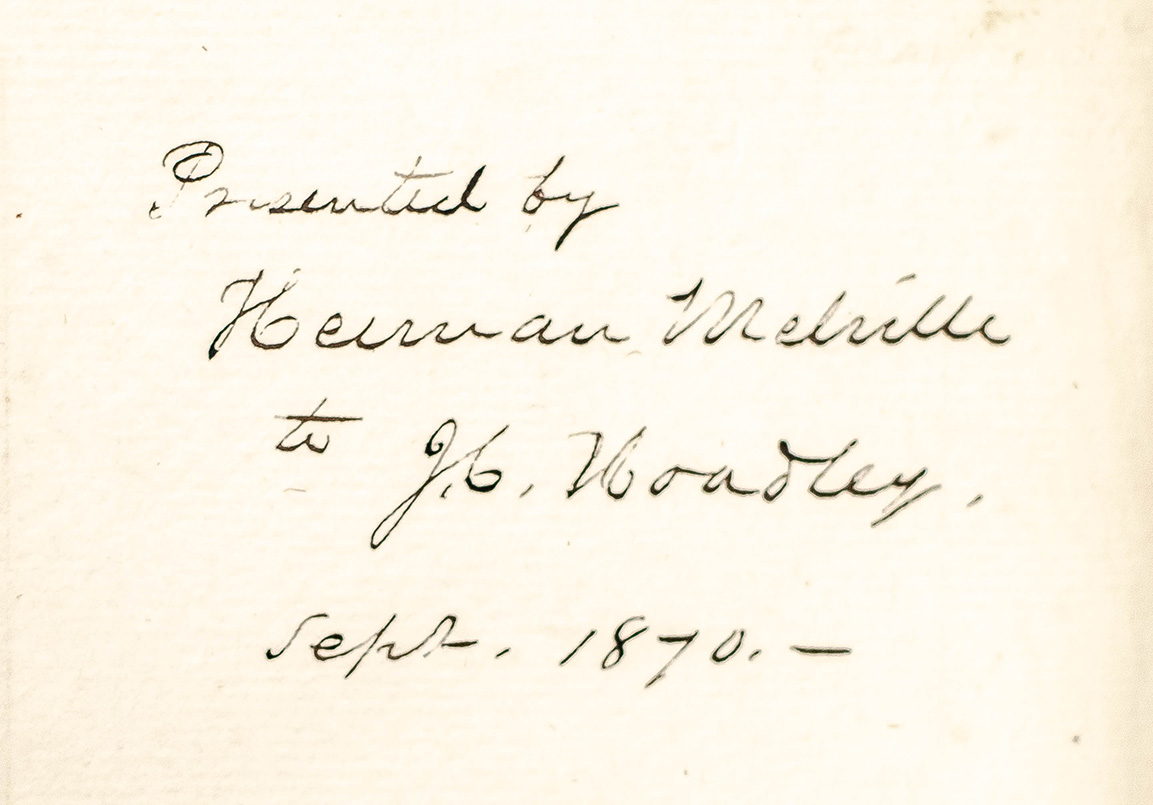 Presented by
Herman Melville
to J.C. Hoadley.
Sept. 1870.—